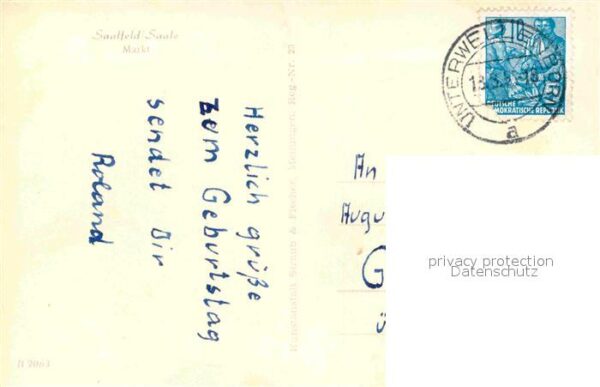 Saalfeld Saale
Markt
Herzlich grüße
zum Geburtstag
sendet Dir
Roland
Kunstanstalt Straub & Fischer, Meiningen Reg.-Nr. 29
B 2063
UNTERWELLENBORN
a
DEUTSCHE
DEMOKRATISCHE REPUBLIK
An
Augu
G
privacy protection
Datenschutz